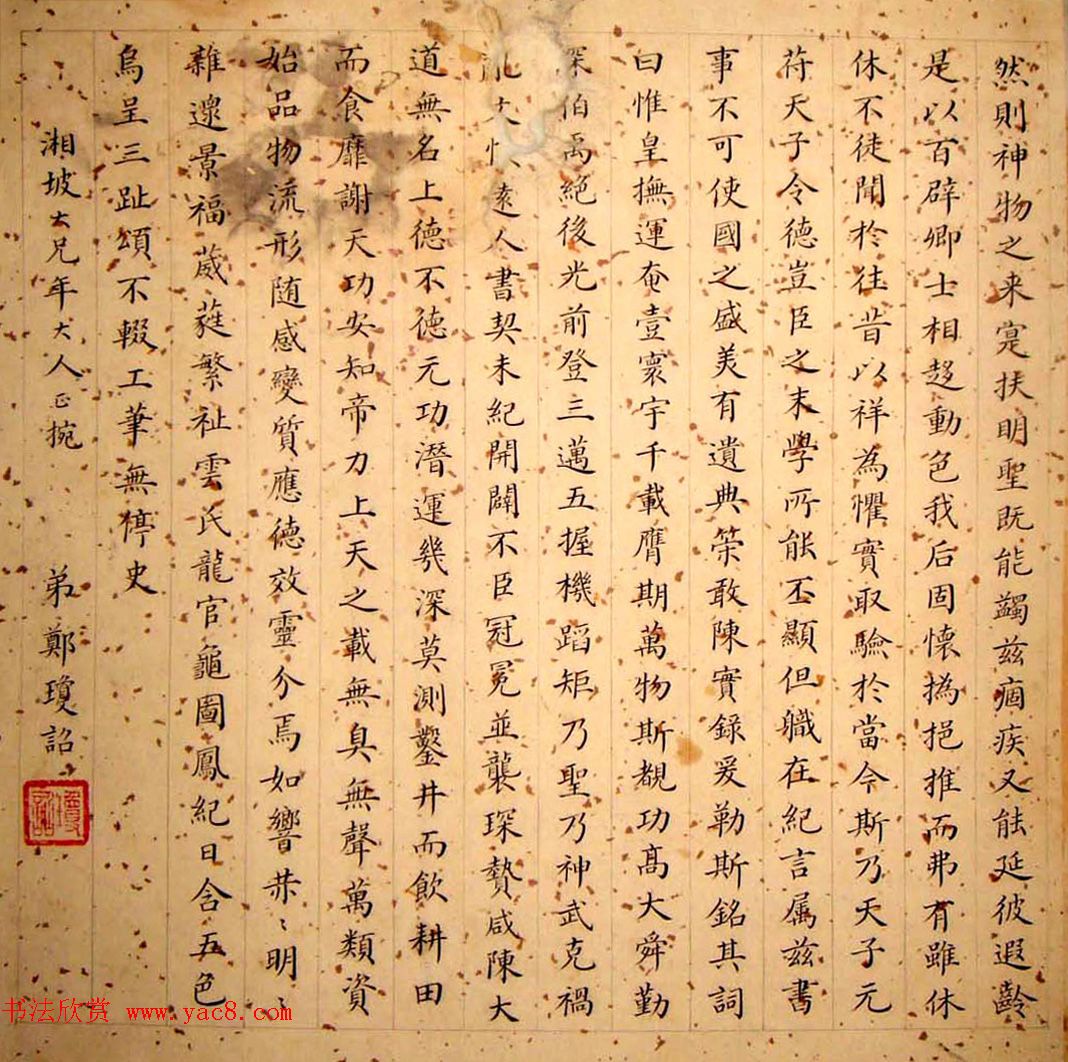 然則神物之来寔扶明聖既能蠲兹痼疾又能延彼遐齡
是以百辟卿士相趍動色我后固懷撝挹推而弗有雖休
休不徒聞於往昔以祥為懼實取驗於當今斯乃天子元
苻天子令德豈臣之末學所能丕顯但軄在紀言属兹書
事不可使國之盛美有遺典䇿敢陳實録爰勒斯銘其詞
曰惟皇撫運奄壹寰宇千載膺期萬物斯覩功髙大舜勤
深伯禹絶後光前登三邁五握機蹈矩乃聖乃神武克禍
亂文懷遠人書契未紀開闢不臣冠冕並襲琛贄咸陳大
道無名上德不德元功潛運幾深莫測鑿井而飲耕田
而食靡謝天功安知帝力上天之載無臭無聲萬類資
始品物流形随感變質應德效靈介焉如響赫〻明〻
雜遝景福葳蕤繁祉雲氏龍官龜圖鳳紀日含五色
烏呈三趾頌不輟工筆無停史
湘坡大兄年大人正捥 弟鄭瓊詔
瓊詔
书法欣赏 www.yac8.com